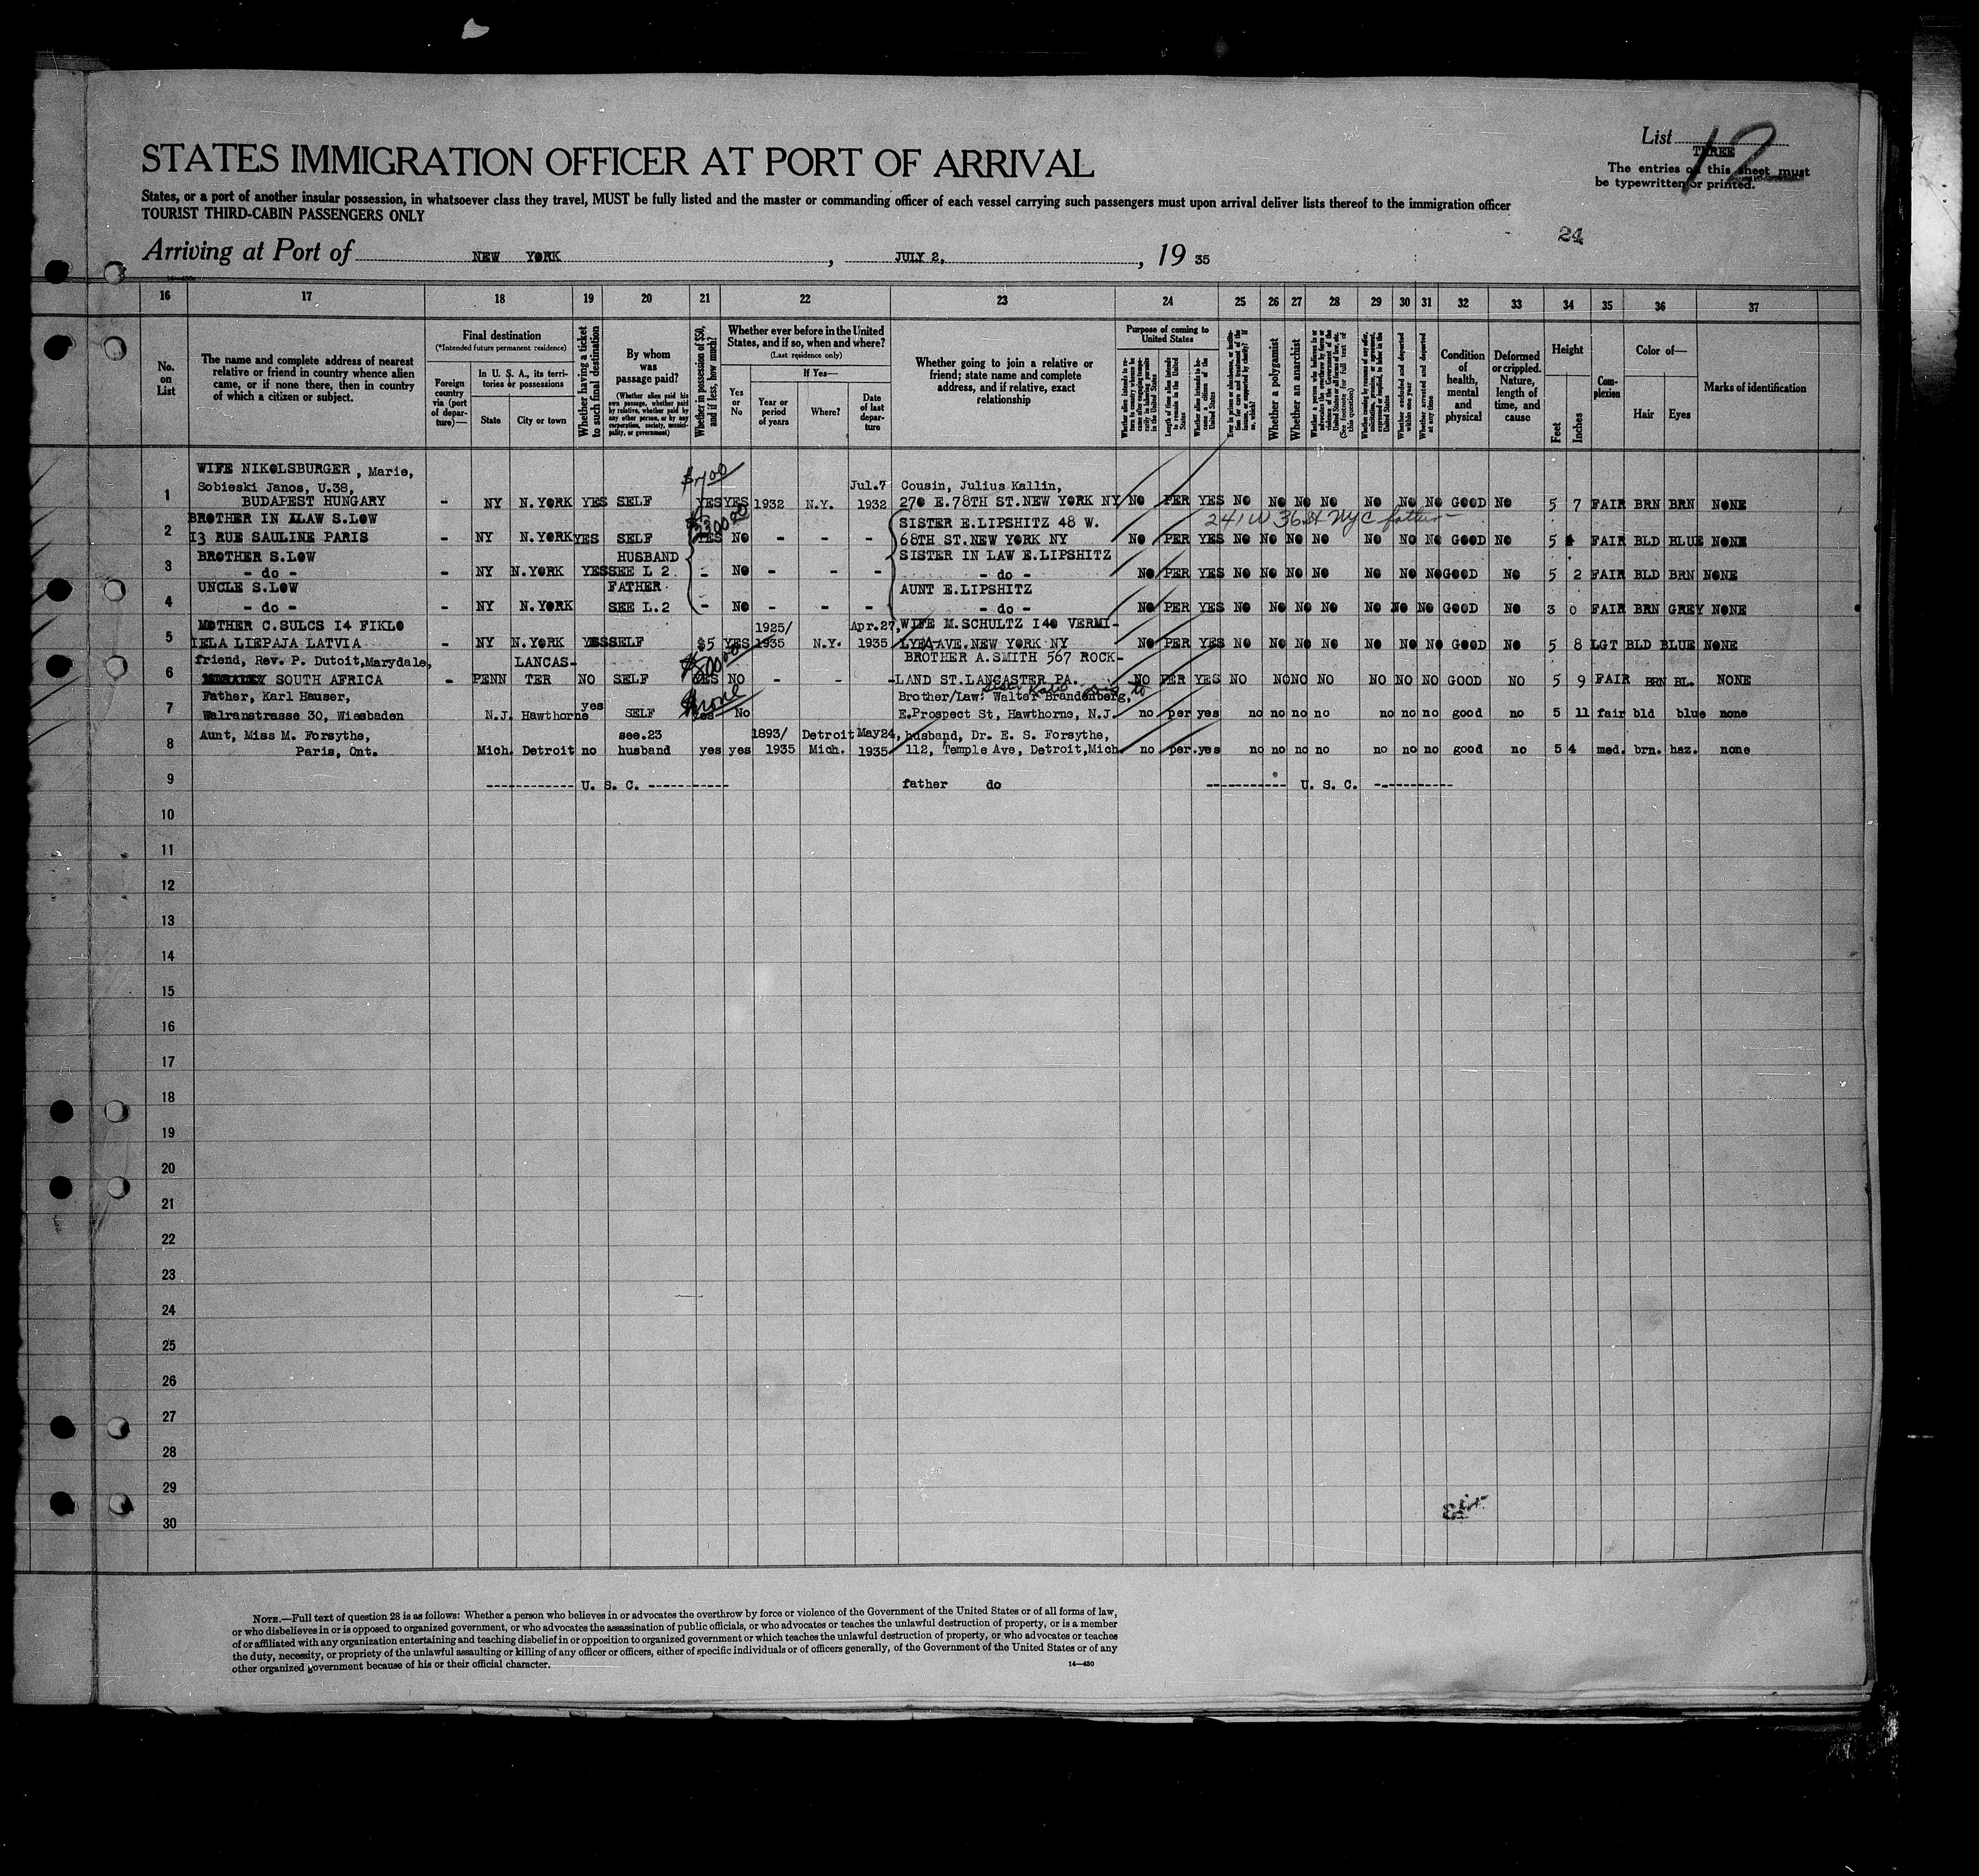 List
THREE
12
STATES IMMIGRATION OFFICER AT PORT OF ARRIVAL
The entries on this sheet must
be typewritten or printed.
States, or a port of another insular possession, in whatsoever class they travel, MUST be fully listed and the master or commanding officer of each vessel carrying such passengers must upon arrival deliver lists thereof to the immigration officer
TOURIST THIRD-CABIN PASSENGERS ONLY
24
Arriving at Port of NEW YORK, JULY 2, 1935
16 17 18 19 20 21 22 23 24 25 26 27 28 29 30 31 32 33 34 35 36 37
No. on List
The name and complete address of nearest relative or friend in country whence alien came, or if none there, then in country of which a citizen or subject.
Final destination
(*Intended future permanent residence)
Foreign country via (port of departure)—
In U. S. A., its territories or possessions
State
City or town
Whether having a ticket to such final destination
By whom was passage paid?
(Whether alien paid his own passage, whether paid by relative, whether paid by any other person, or by any corporation, society, municipality, or government)
Whether in possession of $50, and if less, how much?
Whether ever before in the United States, and if so, when and where?
(Last residence only)
Yes or No
If Yes—
Year or period of years
Where?
Date of last departure
Whether going to join a relative or friend; state name and complete address, and if relative, exact relationship
Purpose of coming to United States
Length of time alien intends to remain in the United States
Whether alien intends to become a citizen of the United States
Whether a polygamist
Whether an anarchist
(See footnote for full text of this question)
Whether arrested and deported within one year
Whether arrested and deported at any time
Condition of health, mental and physical
Deformed or crippled. Nature, length of time, and cause
Height
Feet
Inches
Complexion
Color of—
Hair
Eyes
Marks of identification
WIFE NIKOLSBURGER, Marie,
Sobieski Janos, U.38, $400 Jul.7 Cousin, Julius Kallin,
1 BUDAPEST HUNGARY - NY N.YORK YES SELF YES YES 1932 N.Y. 1932 270 E.78TH ST.NEW YORK NY NO PER YES NO NO NO NO NO NO NO GOOD NO 5 7 FAIR BRN BRN NONE
BROTHER IN LAW S.LOW SISTER E.LIPSHITZ 48 W. 241 W 36 St NYC father
2 13 RUE SAULINE PARIS - NY N.YORK YES SELF YES NO - - - 68TH ST.NEW YORK NY NO PER YES NO NO NO NO NO NO NO GOOD NO 5 FAIR BLD BLUE NONE
BROTHER S.LOW HUSBAND SISTER IN LAW E.LIPSHITZ
3 - do - - NY N.YORK YES SEE L 2 - NO - - - - do - NO PER YES NO NO NO NO NO NO NO GOOD NO 5 2 FAIR BLD BRN NONE
UNCLE S.LOW FATHER AUNT E.LIPSHITZ
4 - do - - NY N.YORK SEE L.2 - NO - - - - do - NO PER YES NO NO NO NO NO NO NO GOOD NO 3 0 FAIR BRN GREY NONE
MOTHER C.SULCS 14 FIKLO 1925/ Apr.27, WIFE M.SCHULTZ 140 VERMI-
5 IELA LIEPAJA LATVIA - NY N.YORK YES SELF $5 YES 1935 N.Y. 1935 LYEA AVE.NEW YORK NY NO PER YES NO NO NO NO NO NO NO GOOD NO 5 8 LGT BLD BLUE NONE
friend, Rev. P. Dutoit, Marydale, LANCAS- BROTHER A.SMITH 567 ROCK-
6 SOUTH AFRICA - PENN TER NO SELF YES NO - - - LAND ST.LANCASTER PA. NO PER YES NO NO NO NO NO NO NO GOOD NO 5 9 FAIR BRN BL. NONE
Father, Karl Hauser, yes none Brother/Law: Walter Brandenberg,
7 Walramstrasse 30, Wiesbaden N.J. Hawthorne SELF Yes No E.Prospect St, Hawthorne, N.J. no per yes no no no no no no no good no 5 11 fair bld blue none
Aunt, Miss M. Forsythe, see.23 1893/ Detroit May24, husband, Dr. E. S. Forsythe,
8 Paris, Ont. Mich. Detroit no husband yes yes 1935 Mich. 1935 112, Temple Ave, Detroit, Mich no per.yes no no no no no no no good no 5 4 med. brn. haz. none
9 ------------ U. S. C. ----------- father do ----------- U. S. C. -----------
10
11
12
13
14
15
16
17
18
19
20
21
22
23
24
25
26
27
28
29
30
NOTE.—Full text of question 28 is as follows: Whether a person who believes in or advocates the overthrow by force or violence of the Government of the United States or of all forms of law,
or who disbelieves in or is opposed to organized government, or who advocates the assassination of public officials, or who advocates or teaches the unlawful destruction of property, or is a member
of or affiliated with any organization entertaining and teaching disbelief in or opposition to organized government or which teaches the unlawful destruction of property, or who advocates or teaches
the duty, necessity, or propriety of the unlawful assaulting or killing of any officer or officers, either of specific individuals or of officers generally, of the Government of the United States or of any
other organized government because of his or their official character.
14—430